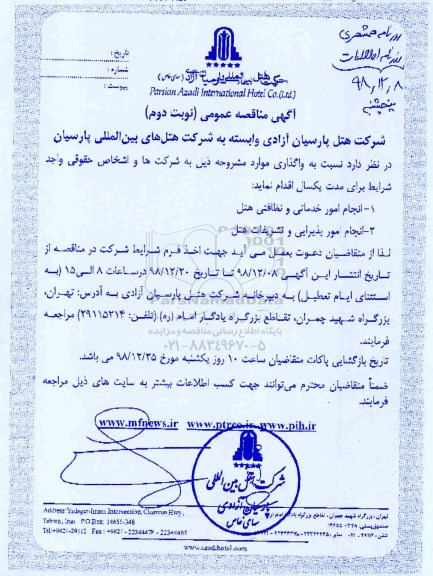 روزنامه همشهری
روزنامه اطلاعات
۹۸,۱۲,۸
پنجشنبه
تاریخ :
شماره :
پیوست :
شرکت هتل بین‌المللی پارسیان آزادی (سهامی خاص)
Parsian Azadi International Hotel Co.(Ltd.)
آگهی مناقصه عمومی (نوبت دوم)
شرکت هتل پارسیان آزادی وابسته به شرکت هتل‌های بین‌المللی پارسیان
در نظر دارد نسبت به واگذاری موارد مشروحه ذیل به شرکت ها و اشخاص حقوقی واجد
شرایط برای مدت یکسال اقدام نماید:
۱-انجام امور خدماتی و نظافتی هتل
۲-انجام امور پذیرایی و تشریفات هتل
لذا از متقاضیان دعوت بعمل می آید جهت اخذ فرم شرایط شرکت در مناقصه از
تاریخ انتشار این آگهی ۹۸/۱۲/۰۸ تا تاریخ ۹۸/۱۲/۲۰ درساعات ۸ الی۱۵ (به
استثنای ایام تعطیل) به دبیرخانه شرکت هتل پارسیان آزادی به آدرس: تهران،
بزرگراه شهید چمران، تقاطع بزرگراه یادگار امام (ره) (تلفن: ۲۹۱۱۵۲۱۴) مراجعه
فرمایند.
پایگاه اطلاع رسانی مناقصه و مزایده
۰۲۱-۸۸۳۴۹۶۷۰-۵
تاریخ بازگشایی پاکات متقاضیان ساعت ۱۰ روز یکشنبه مورخ ۹۸/۱۲/۲۵ می باشد.
ضمناً متقاضیان محترم می‌توانند جهت کسب اطلاعات بیشتر به سایت های ذیل مراجعه
فرمایند.
www.mfnews.ir www.ptrco.ir www.pih.ir
شرکت هتل بین المللی
پارسیان آزادی
سهامی خاص
Address: Yadegar-Imam Intersection, Chamran Hwy.,
Tehran, Iran P.O.Box: 14655-348
Tel:+9821-29112 Fax: +9821 - 22344478 - 22346465
www.azadihotel.com